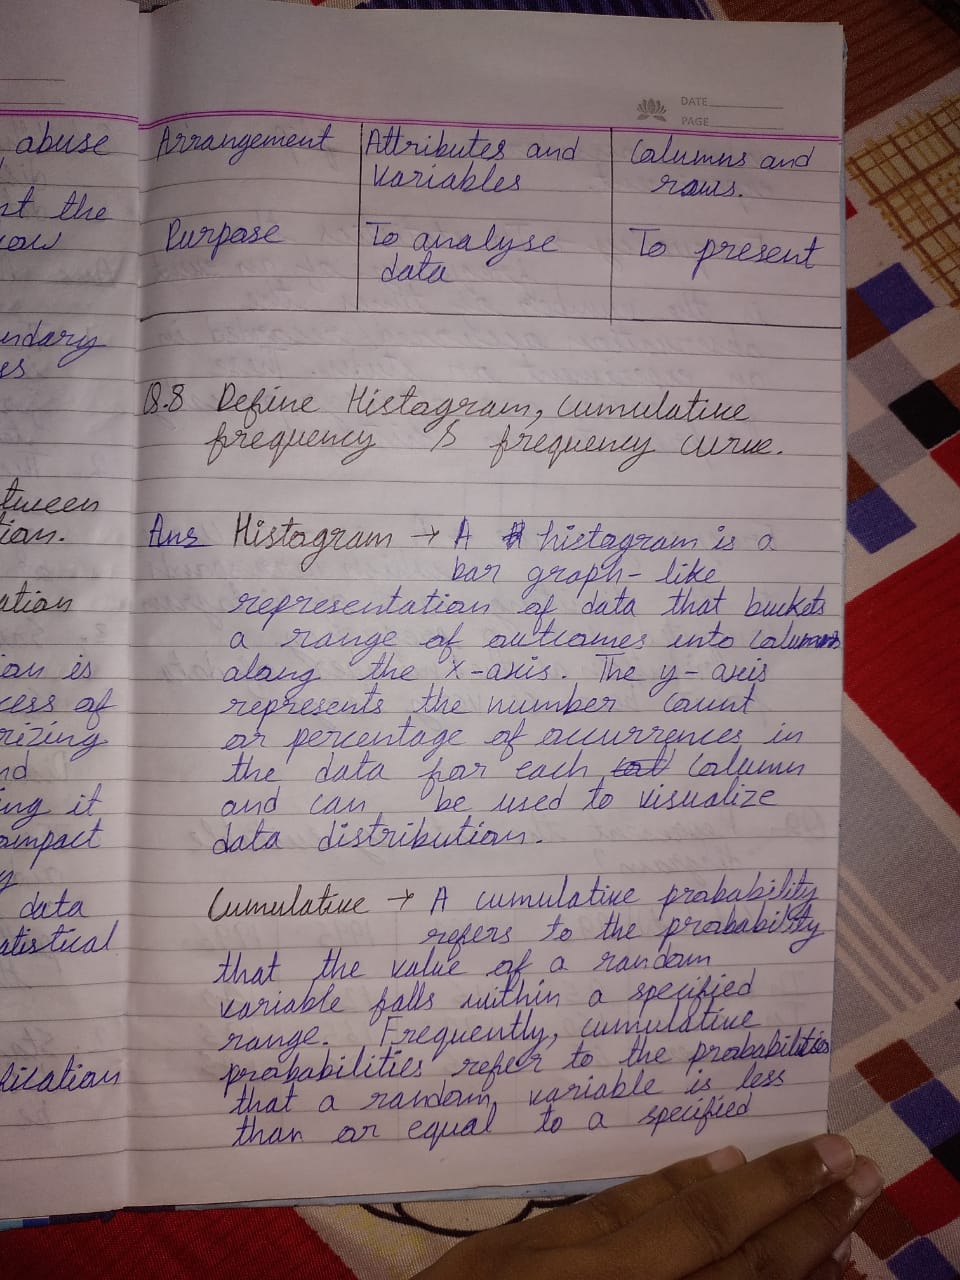 DATE
PAGE
abuse
nt the
now
ndary
es
tween
tion.
ation
ion is
cess of
rizing
nd
ing it
ompact
y
data
atistical
fication
Arrangement Attributes and Columns and
variables rows.
Purpose To analyse To present
data
Q.8 Define Histogram, Cumulative
frequency & frequency curve.
Ans Histogram → A histogram is a
bar graph-like
representation of data that buckets
a range of outcomes into columns
along the x-axis. The y-axis
represents the number count
or percentage of occurrences in
the data for each column
and can be used to visualize
data distribution.
Cumulative → A cumulative probability
refers to the probability
that the value of a random
variable falls within a specified
range. Frequently, cumulative
probabilities refer to the probabilities
that a random variable is less
than or equal to a specified